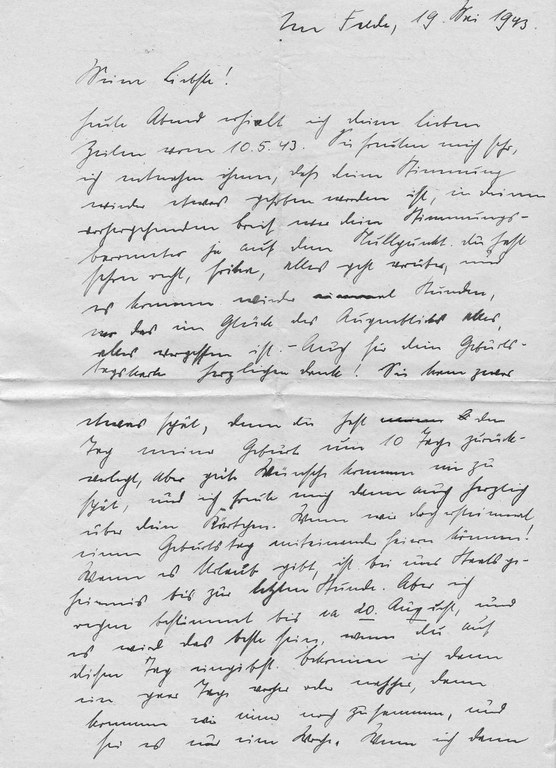 Im Felde, 19. Mai 1943.
Meine Liebste!
Heute Abend erhielt ich deine lieben
Zeilen vom 10.5.43. Sie freuten mich sehr,
ich entnahm ihnen, daß deine Stimmung
wieder etwas gehoben worden ist, in deinem
vorhergehenden Brief war dein Stimmungs-
barometer ja auf dem Nullpunkt. Du hast
schon recht, alles geht vorüber, und
es kommen wieder einmal Stunden,
wo das im Glück des Augenblicks alles,
alles vergessen ist. – Auch für deine Geburts-
tagskarte herzlichen Dank! Sie kam zwar
etwas spät, denn du hast den
Tag meiner Geburt um 10 Tage zurück-
verlegt, aber gute Wünsche kommen nie zu
spät, und ich freute mich denn auch herzlich
über dein Kärtchen. Wenn wir doch erst einmal
einen Geburtstag miteinander feiern können!
Wann es Urlaub gibt, ist bei uns Staatsge-
heimnis bis zur letzten Stunde. Aber ich
rechne bestimmt bis ca 20. August, und
es wird das beste sein, wenn du auf
diesen Tag eingibst. Bekomme ich dann
ein paar Tage vorher oder nachher, dann
kommen wir immer noch zusammen, und
sei es nur eine Woche. Wenn ich dann